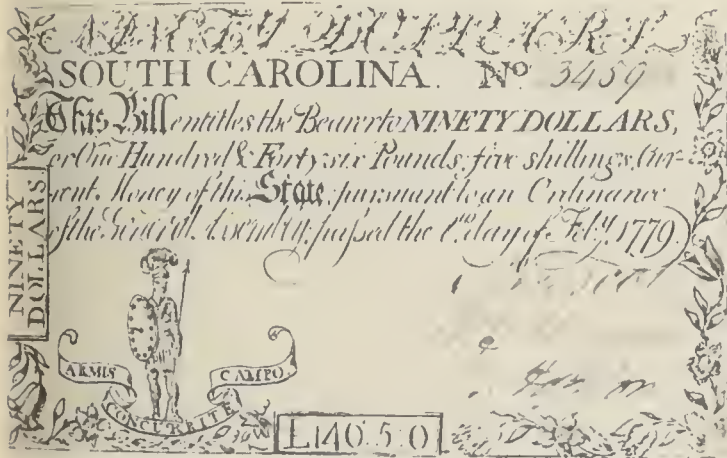 NINETY DOLLARS
SOUTH CAROLINA. No 3459
This Bill entitles the Bearer to NINETY DOLLARS,
or One Hundred & Forty six Pounds, five shillings, Cur-
rent Money of this State, pursuant to an Ordinance
of the General Assembly, passed the day of Feby. 1779
NINETY
DOLLARS
ARMIS
CONCURRITE
CAMPO.
£140.5.0